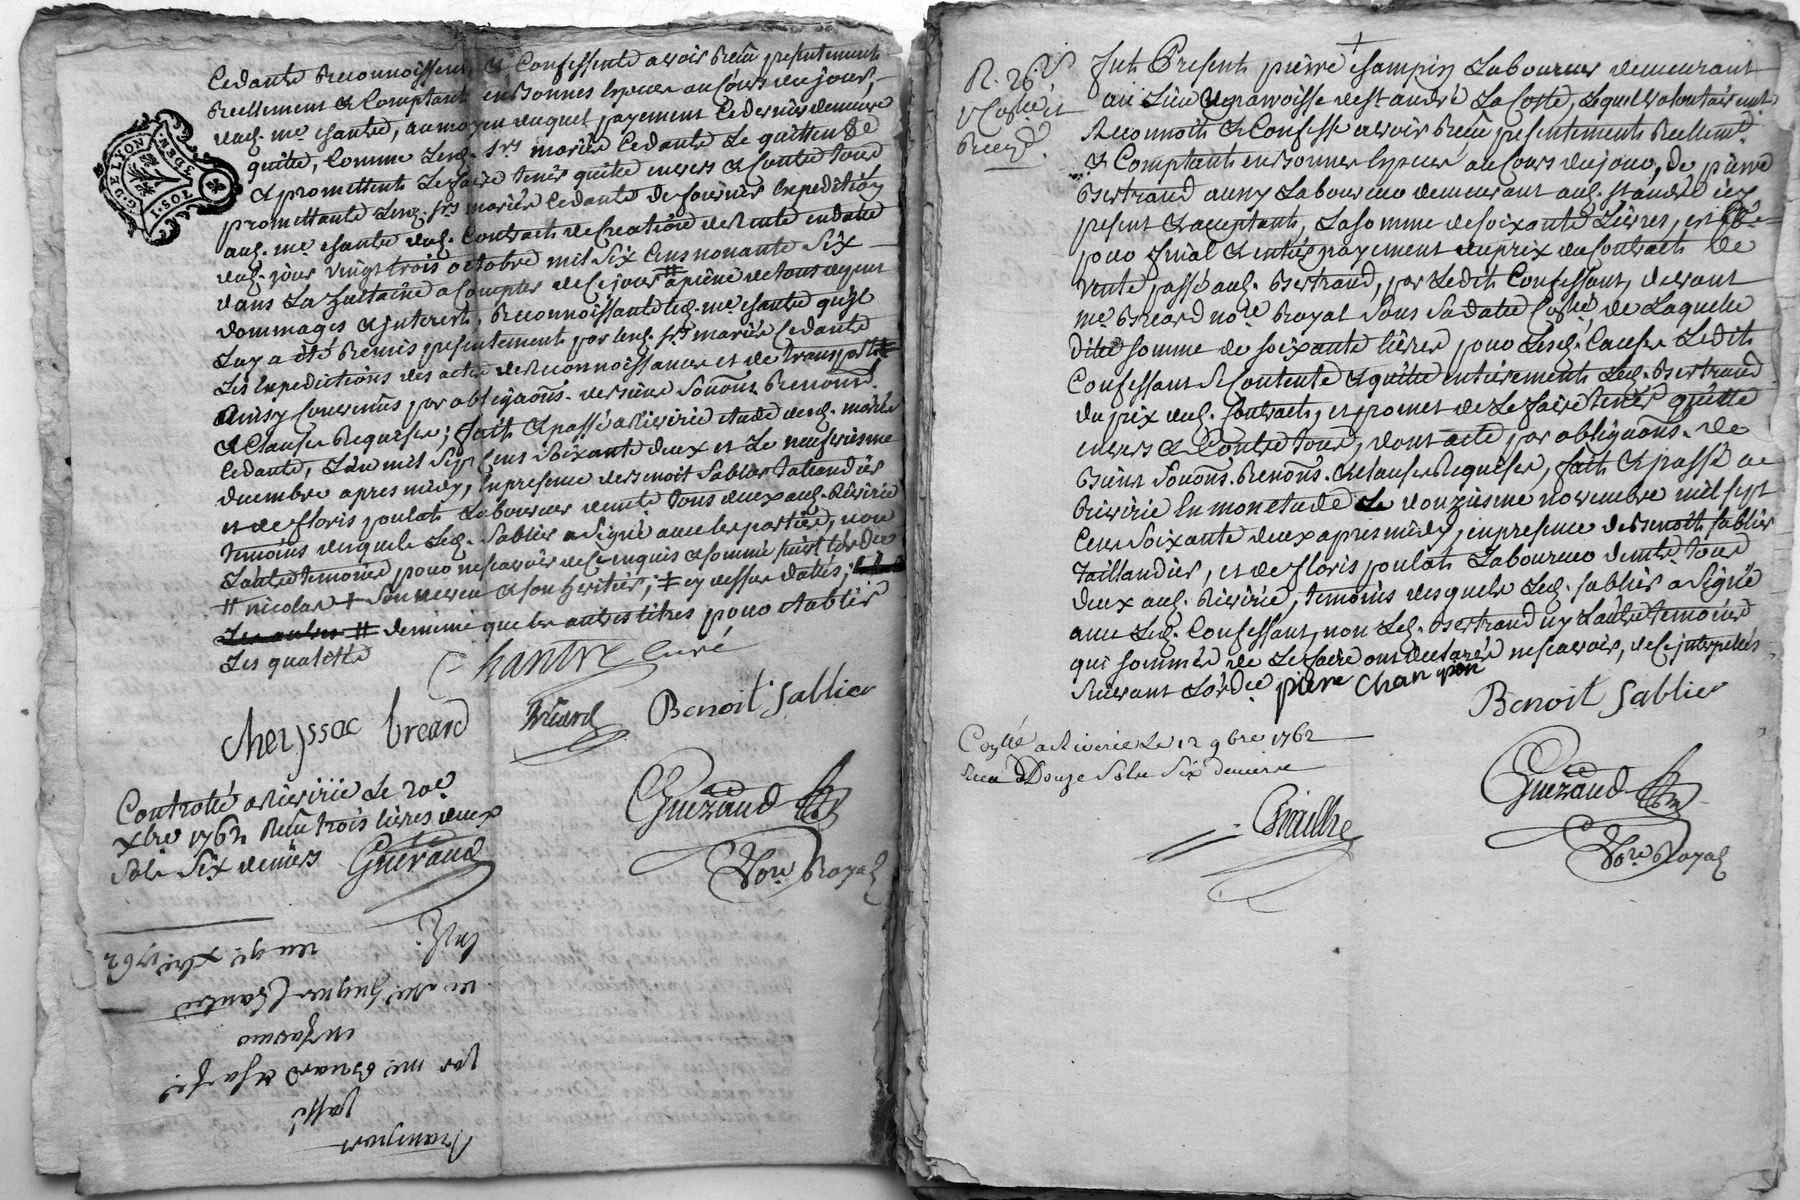 Cedante Reconnoissent & Confessente avoir Reçu presentement
Reellement & Comptant en bonnes Especes au Cours du jour,
dud. me. Chantre, au moyen duquel payement Ce dernier demeure
quitte, Comme lesd. Srs mariés Cedante le quittent
& promettent le faire tenir quitte envers & Contre tous
promettante lesd. Srs mariés Cedante de fournir Expedition
aud. me Chantre dud. Contract de Creation de Rente en datte
dud. jour vingt trois octobre mil Six Cens nonante Six
dans La huitaine a Compter de Ce jour # a peine de tous depens
dommages & interests, Reconnoissante led. me. Chantre qu'il
Luy a été Remis presentement par lesd. Srs mariés Cedante
Les Expeditions des actes de Reconnoissances et de transports ‡
Ainsy Convenus par obligaõns. de biens Soumõns Renonõns.
& Clauses Requises; fait & passé a Riverie Etude desd. mariés
Cedante, L'an mil Sept Cens Soixante deux et Le neufvieme
decembre apres midy, En presence de Benoit Sablier taillandier
et de Floris poulat Laboureur demt. tous deux aud. Riverie
temoins desquels Led. Sablier a Signé avec les parties, non
L'autre temoin pour ne sçavoir de Ce enquis & sommé suivt l'ordce
# nicolas + Son neveu & son heritier; ‡ cy dessus datés;
Les autres # de meme que les autres titres pour etablir
Les qualités
Chantre Curé
Cheyssac breard
Briard
Benoit Sablier
Gueraud
Nore. Royal
Controllé a Riverie Le 10e
Xbre 1762 Reçu trois livres deux
Sols Six deniers Gueraud
Transport
passé
par me. Breard & sa fe.
en faveur
de Me. hugues Chantre
Curé.
du 9e. Xbre. 1762
R. 26
Fut Present pierre Champin Laboureur demeurant
au Lieu & parroisse de St. andré La Coste, Lequel volontairemt.
Reconnoit & Confesse avoir Reçu presentement Reellemt.
& Comptant en bonnes Especes au Cours du jour, de pierre
Bertrand aussy Laboureur demeurant aud. St. andré icy
present & acceptant, La somme de soixante Livres, et Ce
pour final & entier payement du prix du Contract de
vente passé aud. Bertrand, par Ledit Confessant, devant
me. Breard nore. Royal Sous Sa datte Collé. de Laquelle
ditte somme de soixante livres pour Lesd. Causes Ledit
Confessant se Contente & quitte entierement Led. Bertrand
du prix dud. Contract, et promet de Le faire tenir quitte
envers & Contre tous, dont acte par obligaõns. de
Biens Soumõns. Renonõns. & Clauses Requises, fait & passé a
Riverie En mon etude Le douzieme novembre mil sept
Cens Soixante deux apres midy, en presence de Benoit Sablier
taillandier, et de Floris poulat Laboureur demt. tous
deux aud. Riverie, temoins desquels Led. Sablier a Signé
avec Led. Confessant, non Led. Bertrand ny L'autre temoin
qui sommés de Le faire ont declaré ne sçavoir, de Ce interpellés
suivant L'ordce pierre Chanpin
Benoit Sablier
Collé a Riverie Le 12 9bre 1762
Reçu Douze Sols Six deniers
Gueraud
Nore. Royal